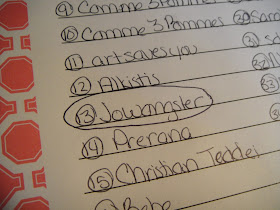 9 Comme 3 Pommes
10 Comme 3 Pommes
11 artsavesyou
12 Alkistis
13 Jowangster
14 Prerana
15 Christian Teddei
Bebe